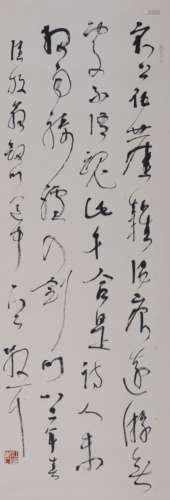 衣上征塵雜酒痕遠游無
處不消魂此身合是詩人未
細雨騎驢入劍門 八二年春
陸放翁劍門道中